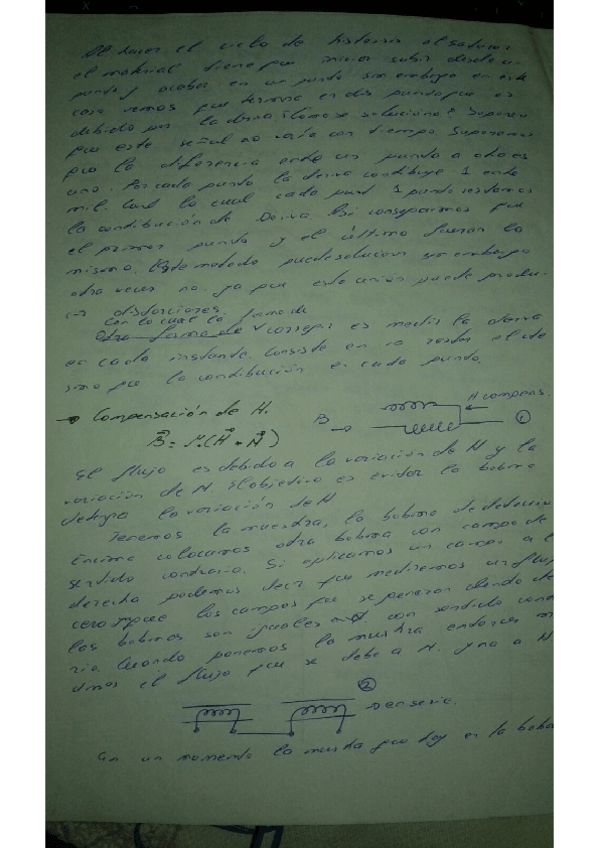 Al hacer el ciclo de histeresis al saturar
el material tiene que iniciar subir desde un
punto y acabar en un punto sin embargo en este
caso vemos que termina en dos puntos que es
debido por la deriva ¿Como se soluciona? Suponer
que este señal no varia con tiempo. Suponemos
que la diferencia entre un punto a otro es
uno. Por cada punto la deriva contribuye 1 entre
mil. Con lo cual cada punt 1 punto restamos
la contribución de Deriva. Asi conseguimos que
el primer punto y el último fueran lo
mismo. Este metodo puede solucionar sin embargo
otra veces no. ya que esta unión puede produ-
cir distorsiones.
con lo cual la forma de
Otra forma de corregir es medir la deriva
en cada instante. Consiste en no restar el
mo que la contribución en cada punto.
→ Compensación de H.
B H compens.
→ ①
B = μ.(H + M)
El flujo es debido a la variación de H y la
variación de M El objetivo es evitar la bobina
detecte la variación de H
Tenemos la muestra, la bobina de detección
Encima colocamos otra bobina con campo de
sentido contrario. Si aplicamos un campo a l
derecha podemos decir que mediremos un flujo
cero porque los campos que se generan dentro de
las bobinas son iguales con sentido con
rio. Cuando ponemos la muestra entonces m
dimos el flujo que se debe a M. y no a H
②
→ en serie.
En un momento la muestra que hay en la bobi